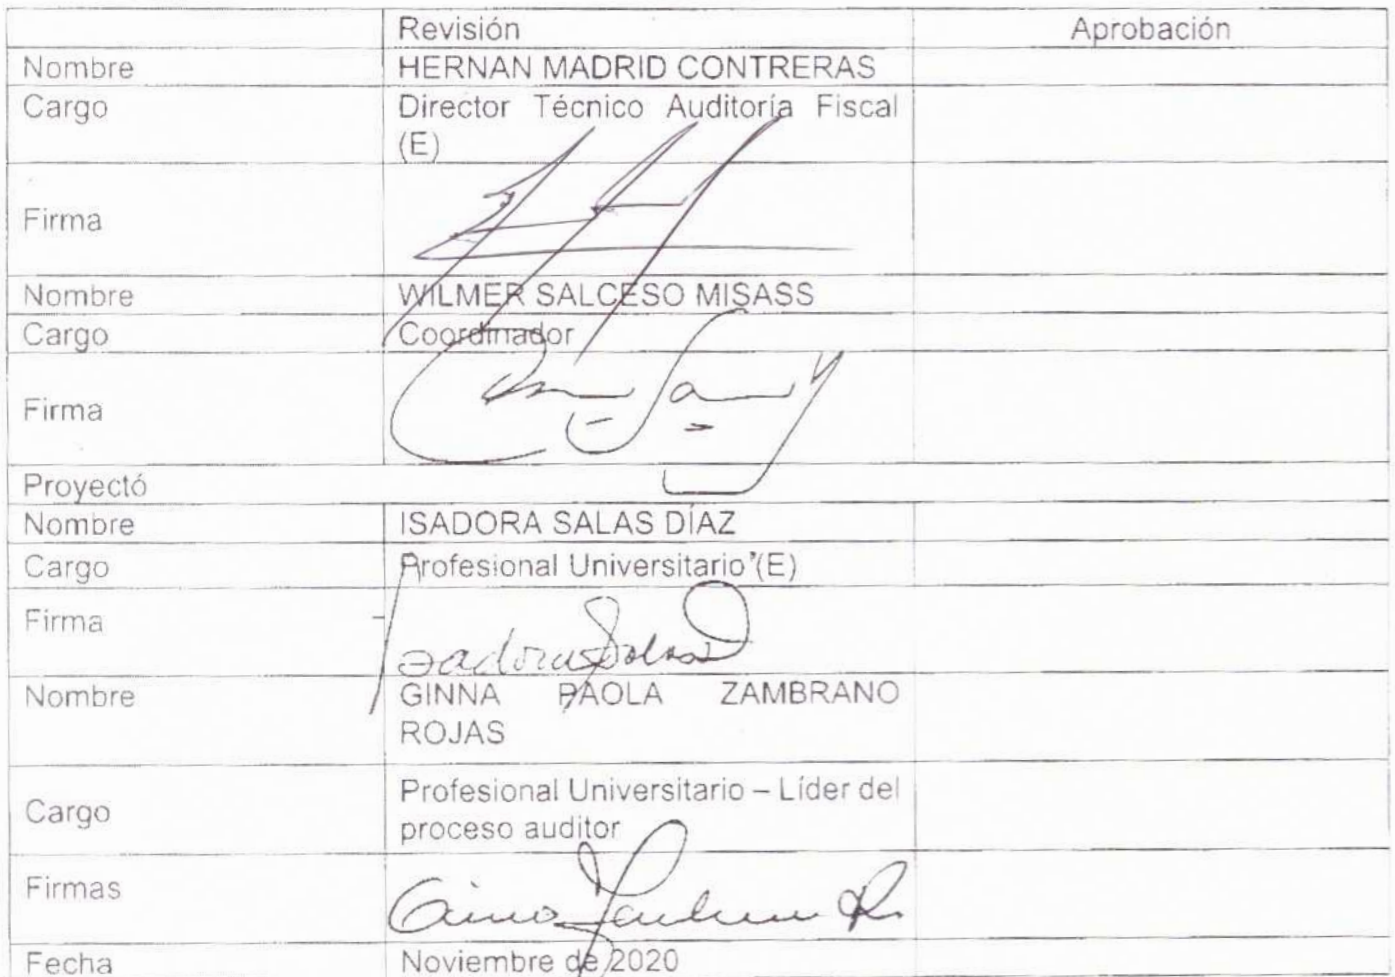 Revisión Aprobación
Nombre HERNAN MADRID CONTRERAS
Cargo Director Técnico Auditoría Fiscal
(E)
Firma
Nombre WILMER SALCESO MISASS
Cargo Coordinador
Firma
Proyectó
Nombre ISADORA SALAS DÍAZ
Cargo Profesional Universitario (E)
Firma Isadora Salas
Nombre GINNA PAOLA ZAMBRANO
ROJAS
Cargo Profesional Universitario – Líder del
proceso auditor
Firmas
Fecha Noviembre de 2020